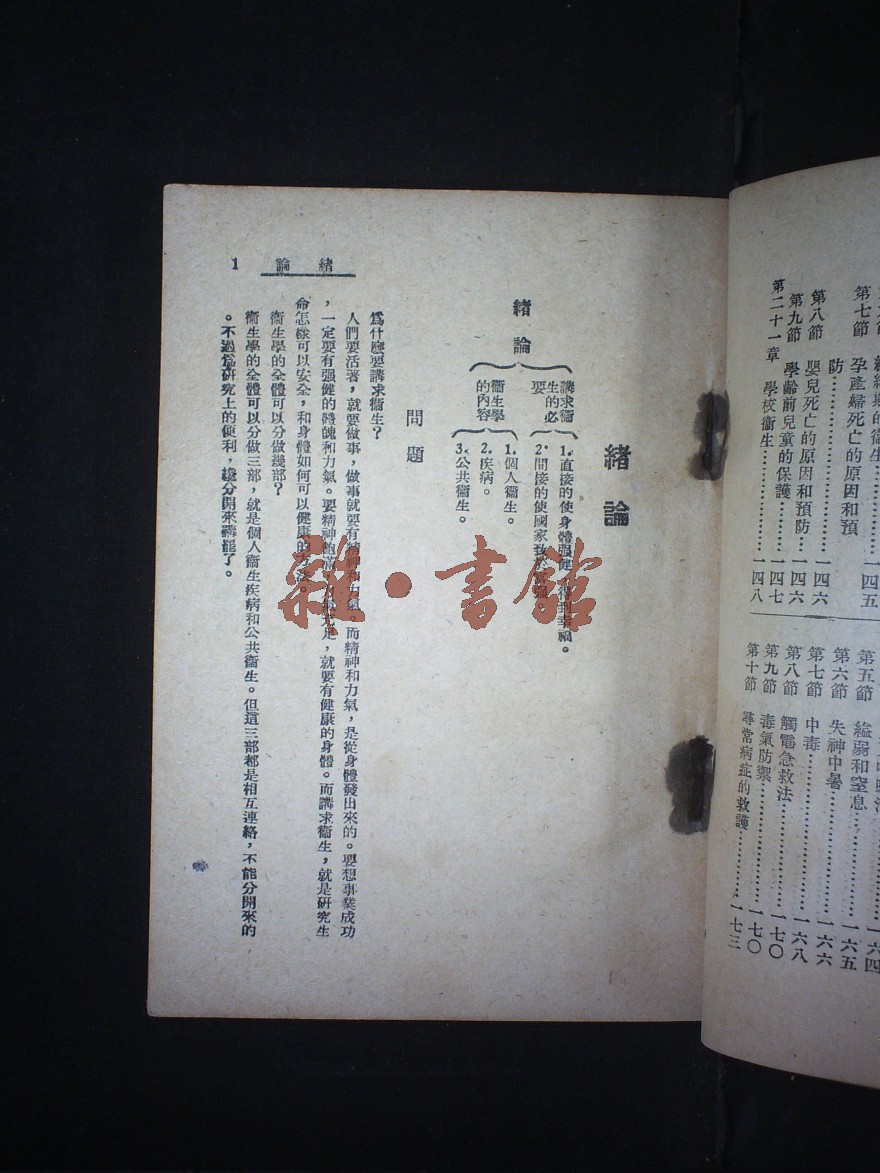 第七節 孕產婦死亡的原因和預
防………………一四五
第八節 嬰兒死亡的原因和預防…一四六
第九節 學齡前兒童的保護………一四七
第二十一章 學校衞生……………一四八
第五節 縊弱和窒息………一六四
第六節 失神中暑…………一六五
第七節 中毒………………一六六
第八節 觸電急救法………一六八
第九節 毒氣防禦…………一七〇
第十節 尋常病症的救護…一七三
緒論
緒論
講求衞
生的必
要
1.直接的使身體强健,得到幸福。
2.間接的使國家致於富强。
衞生學
的內容
1.個人衞生。
2.疾病。
3.公共衞生。
問題
爲什應要講求衞生?
人們要活著,就要做事,做事就要有精神和力氣。而精神和力氣,是從身體發出來的。要想事業成功
,一定要有强健的體魄和力氣。要精神飽滿,力氣充足,就要有健康的身體。而講求衞生,就是研究生
命怎樣可以安全,和身體如何可以健康的方法。
衞生學的全體可以分做幾部?
衞生學的全體可以分做三部,就是個人衞生疾病和公共衞生。但這三部都是相互連絡,不能分開來的
。不過爲研究上的便利,纔分開來講罷了。
緒論
1
雜·書館